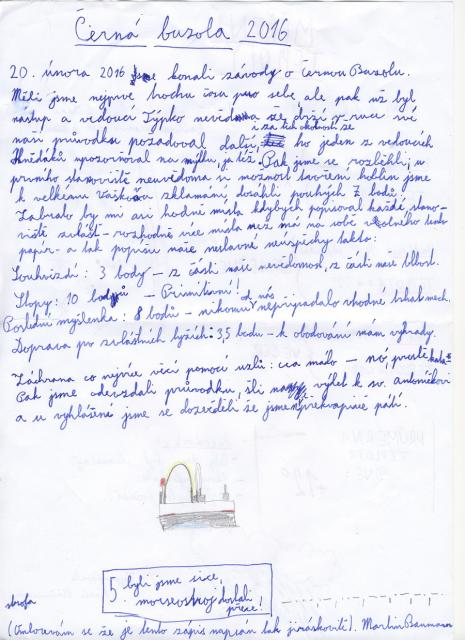 Černá buzola 2016
20. února 2016 jsme konali závody o černou Buzolu.
Měli jsme nejprve trochu času pro sebe, ale pak už byl
nástup a vedoucí Týpko nevědoma že drží v ruce své
naši průvodku požadoval další
i za těch okolností se
ho jeden z vedoucích
Hnědáků upozornil na mýlku, ja též. Pak jsme se rozběhli, u
prvního stanoviště neuvědoma si možnost tvoření hoblin jsme
k velkému Vaškovu zklamání dosáhli pouhých 7 bodů.
Zabralo by mi asi hodně místa kdybych popisoval každé stano-
viště zvlášť - rozhodně více místa než má na sobě volného tento
papír - a tak popíšu naše neslavné neúspěchy takto:
Souhvězdí: 3 body - z části naše nevědomost, z části naše blbost.
Stopy: 10 bodů - Primitivní!
Poslední myšlenka: 8 bodů - nikomu z nás nepřipadalo vhodné trhat mech.
Doprava po zvláštních lyžích: 3,5 bodu - k obodování mám výhrady.
Záchrana co nejvíce věcí pomocí uzlů: cca málo - nó, prostě
Pak jsme odevzdali průvodku, šli na výlet k sv. antoníčkovi
a u vyhlášené jsme se dozvěděli, že jsme překvapivě pátí.
5. byli jsme sice,
morseostroj dostali
přece!
sbrofa
(Omlouvám se že je tento zápis napsán tak jiráskovitě). Martin Baumann